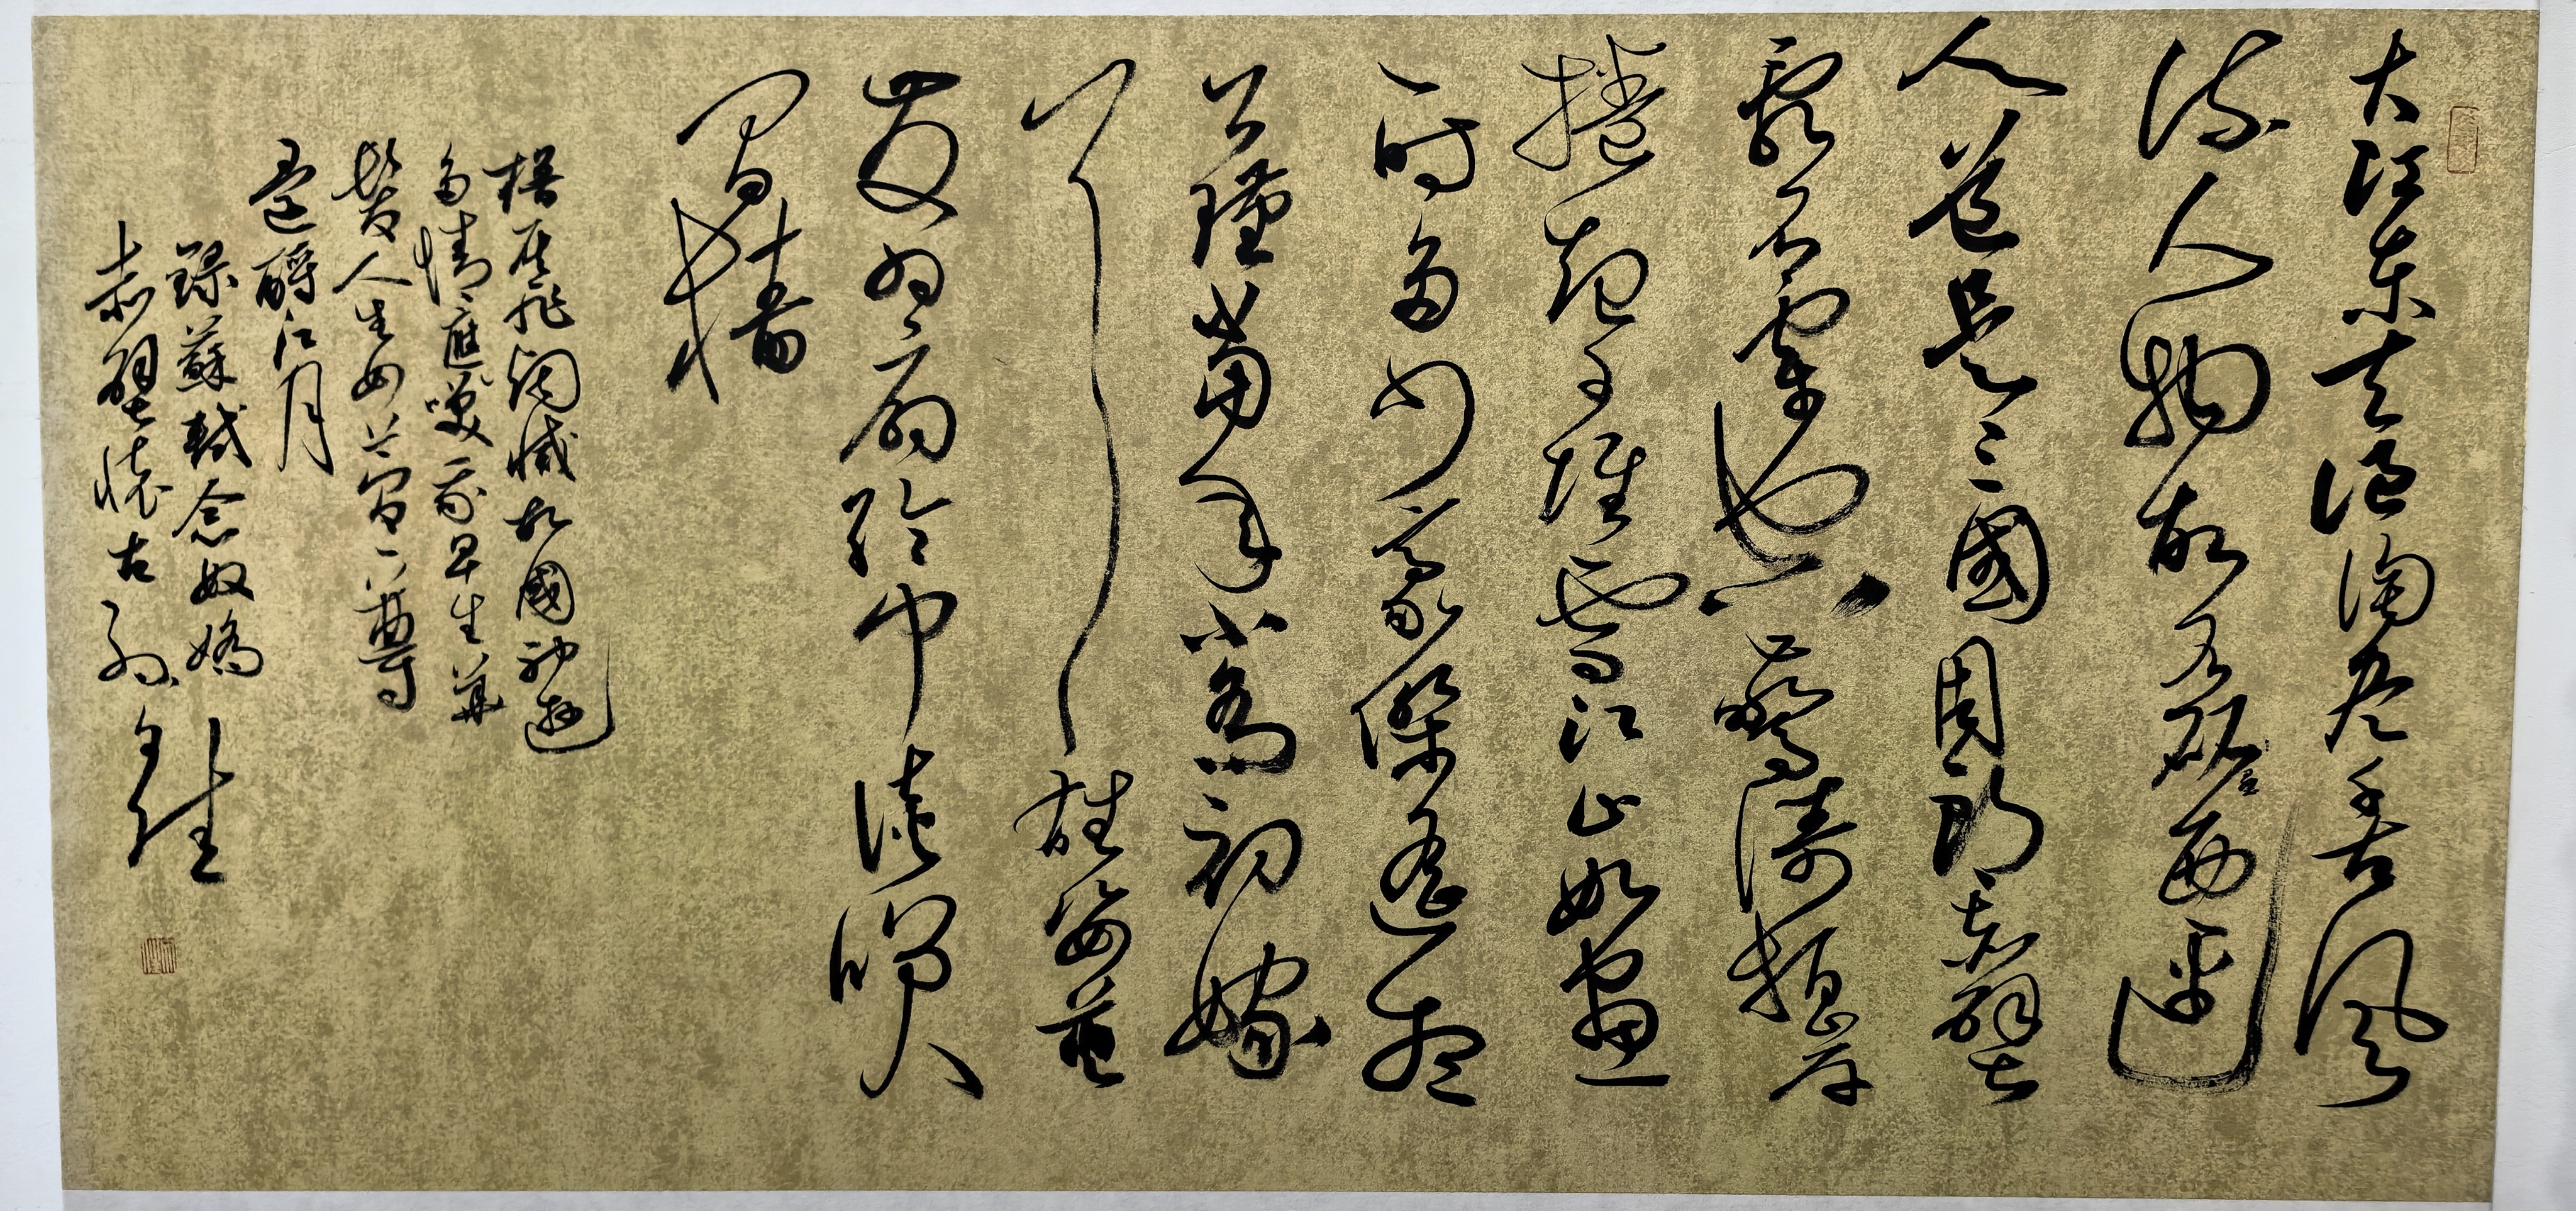 大江東去浪淘盡千古風
流人物故壘西邊
人道是三國周郎赤壁
亂石穿空驚濤拍岸
捲起千堆雪江山如畫
一時多少豪傑遙想
公瑾當年小喬初嫁
了雄姿英
發羽扇綸巾談笑
間檣
櫓灰飛烟滅故國神遊
多情應笑我早生華
髮人生如夢一尊
還酹江月
錄蘇軾念奴嬌
赤壁懷古